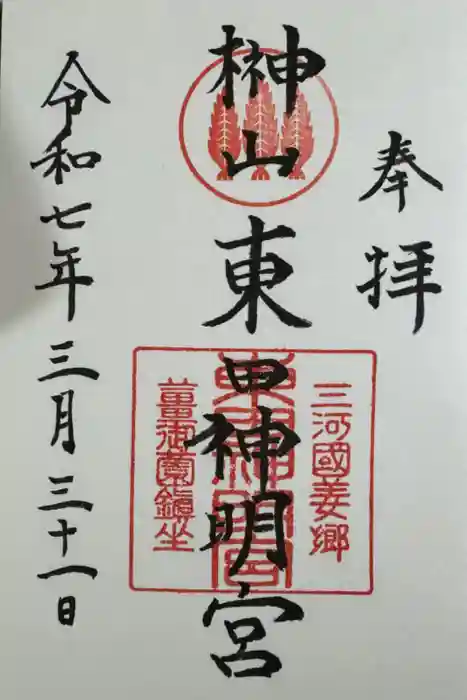 奉拝
榊山
東田神明宮
三河國姜郷
東田神明宮
薑御薗鎮坐
令和七年三月三十一日